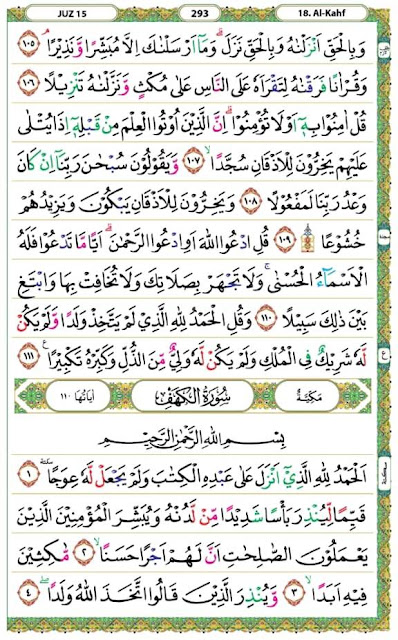 JUZ 15 293 18. Al-Kahf
وَبِالْحَقِّ اَنْزَلْنٰهُ وَبِالْحَقِّ نَزَلَ ۗ وَمَآ اَرْسَلْنٰكَ اِلَّا مُبَشِّرًا وَّنَذِيْرًا ۘ ١٠٥
وَقُرْاٰنًا فَرَقْنٰهُ لِتَقْرَاَهٗ عَلَى النَّاسِ عَلٰى مُكْثٍ وَّنَزَّلْنٰهُ تَنْزِيْلًا ١٠٦
قُلْ اٰمِنُوْا بِهٖٓ اَوْ لَا تُؤْمِنُوْا ۗ اِنَّ الَّذِيْنَ اُوْتُوا الْعِلْمَ مِنْ قَبْلِهٖٓ اِذَا يُتْلٰى
عَلَيْهِمْ يَخِرُّوْنَ لِلْاَذْقَانِ سُجَّدًا ۙ ١٠٧ وَّيَقُوْلُوْنَ سُبْحٰنَ رَبِّنَآ اِنْ كَانَ
وَعْدُ رَبِّنَا لَمَفْعُوْلًا ١٠٨ وَيَخِرُّوْنَ لِلْاَذْقَانِ يَبْكُوْنَ وَيَزِيْدُهُمْ
خُشُوْعًا ۩ ١٠٩ قُلِ ادْعُوا اللّٰهَ اَوِ ادْعُوا الرَّحْمٰنَ ۗ اَيًّا مَّا تَدْعُوْا فَلَهُ
الْاَسْمَاۤءُ الْحُسْنٰى ۚ وَلَا تَجْهَرْ بِصَلَاتِكَ وَلَا تُخَافِتْ بِهَا وَابْتَغِ
بَيْنَ ذٰلِكَ سَبِيْلًا ١١٠ وَقُلِ الْحَمْدُ لِلّٰهِ الَّذِيْ لَمْ يَتَّخِذْ وَلَدًا وَّلَمْ يَكُنْ
لَّهٗ شَرِيْكٌ فِى الْمُلْكِ وَلَمْ يَكُنْ لَّهٗ وَلِيٌّ مِّنَ الذُّلِّ وَكَبِّرْهُ تَكْبِيْرًا ࣖ ١١١
مَكِّيَّةٌ سُوْرَةُ الْكَهْفِ اٰيَاتُهَا ١١٠
بِسْمِ اللّٰهِ الرَّحْمٰنِ الرَّحِيْمِ
اَلْحَمْدُ لِلّٰهِ الَّذِيْٓ اَنْزَلَ عَلٰى عَبْدِهِ الْكِتٰبَ وَلَمْ يَجْعَلْ لَّهٗ عِوَجًا ۜ ١
قَيِّمًا لِّيُنْذِرَ بَأْسًا شَدِيْدًا مِّنْ لَّدُنْهُ وَيُبَشِّرَ الْمُؤْمِنِيْنَ الَّذِيْنَ
يَعْمَلُوْنَ الصّٰلِحٰتِ اَنَّ لَهُمْ اَجْرًا حَسَنًا ۙ ٢ مّٰكِثِيْنَ
فِيْهِ اَبَدًا ۙ ٣ وَّيُنْذِرَ الَّذِيْنَ قَالُوا اتَّخَذَ اللّٰهُ وَلَدًا ۖ ٤